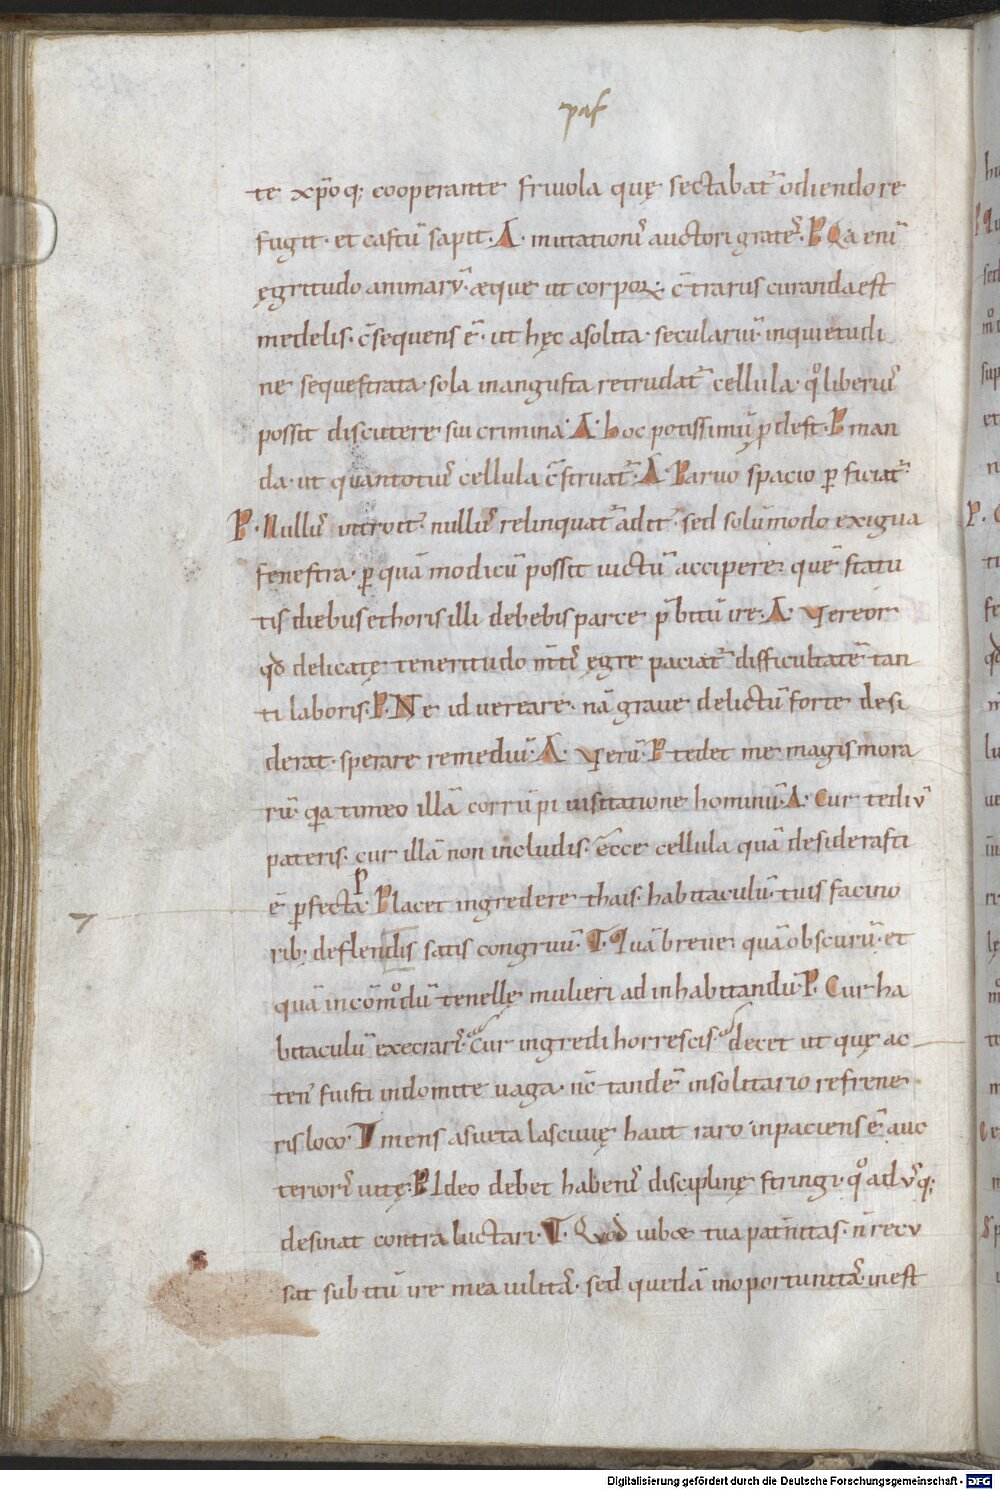 paf
te xp̄oq; cooperante friuola quę sectabat᷑ odiendo re
fugit · et castū sapit · A · mutationiˢ auctori grateˢ · P Qa enī
ęgritudo animarū · æque ut corpoꝝ · c̄trariis curanda est
medelis · c̄sequens ē · ut hęc a solita · seculariū · inquietudi
ne sequestrata · sola in angusta retrudat᷑ cellula · qͦ liberiuˢ
possit discutere sui crimina · A · hoc potissimū ꝓdest · P man
da · ut quantotiuˢ cellula c̄struat᷑ · A · Paruo spacio ꝑficiat᷑
P · Nulluˢ introit᷑ nulluˢ relinquat᷑ adit᷑ · sed solūmodo exigua
fenestra · ꝑ quā modicū possit uictū accipere · quē statu
tis diebus et horis illi debebis parce p̄bitū ire · A · Vereor
qd̄ delicatę teneritudo m̄tiˢ ęgre paciat᷑ difficultatē tan
ti laboris · P · Ne id uereare · nā graue delictū forte desi
derat · sperare remediū · A · Verū · P tedet me magis mora
rū · qa timeo illā corrūpi uisitatione hominū · A · Cur tediū
pateris · cur illā non includis · ecce cellula quā desiderasti
P
ē ꝑfecta · Placet ingredere thais · habitaculū · tuis facino
rib; deflendis satis congruū · T · Quā breue · quā obscurū · et
quā incōmͦdū tenellę mulieri ad inhabitandū · P · Cur ha
bitaculū execrariˢ · cur ingredi horrescis · decet ut quę ac
ten᷒ fuisti indomite uaga · nc̄ tandē in solitario refrene
ris loco · T mens asueta lasciuię haut raro inpaciens ē auc
terioriˢ uitę · P Ideo debet habeniˢ disciplinę stringi · qͦ ad uˢq;
desinat contra luctari · T · Quod iubœ tua pat̄nitas · n̄ recu
sat subitū ire mea uilitaˢ · sed quedā inoportunitaˢ inest
Digitalisierung gefördert durch die Deutsche Forschungsgemeinschaft - DFG